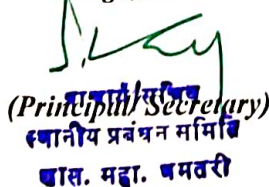 प्राचार्य/सचिव
(Principal/Secretary)
स्थानीय प्रबंधन समिति
शास. महा. धमतरी